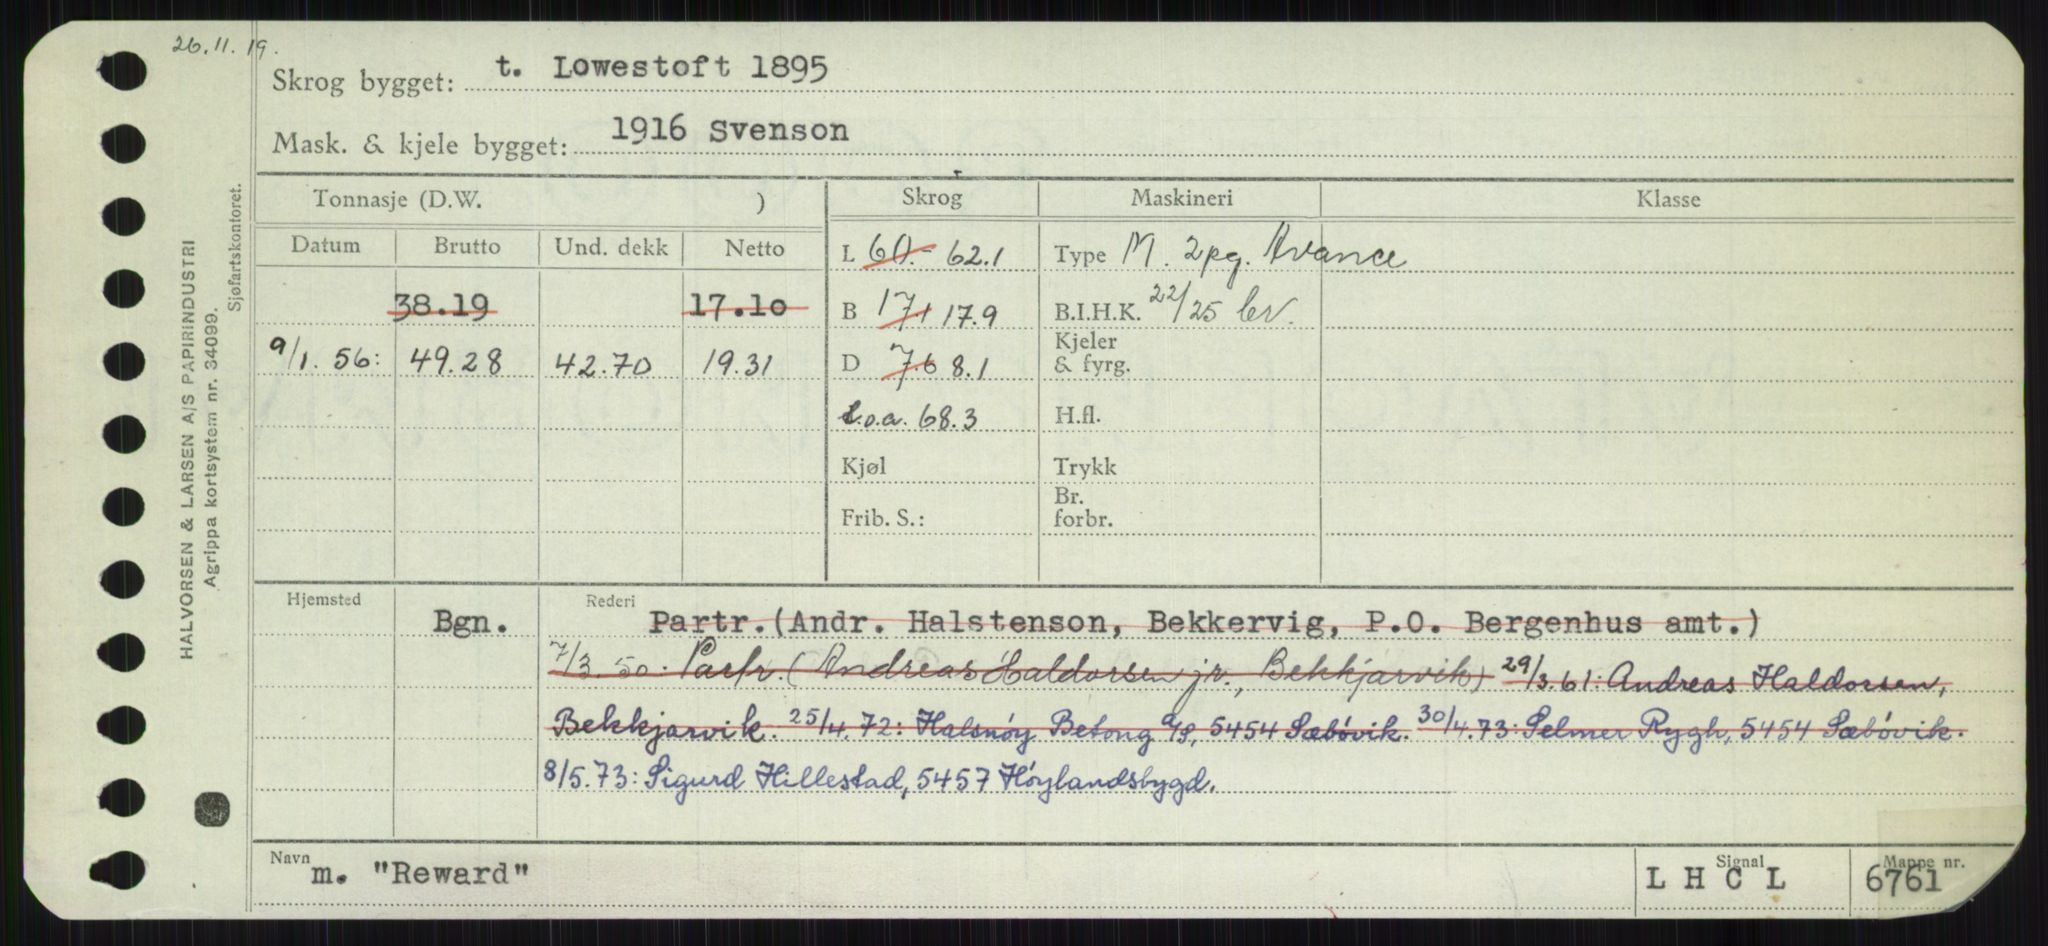 26.11.19.
Skrog bygget: t. Lowestoft 1895
Mask. & kjele bygget: 1916 Svenson
HALVORSEN & LARSEN A/S PAPIRINDUSTRI
Agrippa kortsystem nr. 34099.
Sjøfartskontoret.
Tonnasje (D.W. ) Skrog Maskineri Klasse
Datum Brutto Und. dekk Netto L 60.- 62.1 Type M. 2pg. Avance
38.19 17.10 B 171 17.9 B.I.H.K. 22/25 ev.
9/1.56: 49.28 42.70 19.31 D 7.6 8.1 Kjeler & fyrg.
l.o.a. 68.3 H.fl.
Kjøl Trykk
Frib. S.: Br. forbr.
Hjemsted Rederi
Bgn. Partr.(Andr. Halstenson, Bekkervig, P.O. Bergenhus amt.)
7/3.50: Partr. (Andreas Haldorsen jr., Bekkjarvik) 29/3.61: Andreas Haldorsen,
Bekkjarvik. 25/4.72: Halsnóy Betong a/s, 5454 Sæbóvik. 30/4.73: Selmer Rygh, 5454 Sæbóvik.
8/5.73: Sigurd Hillestad, 5457 Hóylandsbygd.
Navn Signal Mappe nr.
m. "Reward" L H C L 6761